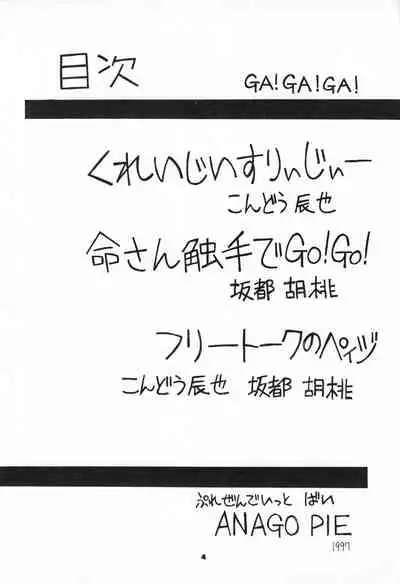 目次
GA!GA!GA!
くれいじいすりぃじぃー
こんどう辰也
命さん触手でGO!GO!
坂都 胡桃
フリートークのペィジ
こんどう辰也 坂都 胡桃
ぷれぜんでいっと ばい
ANAGO PIE
1997
4